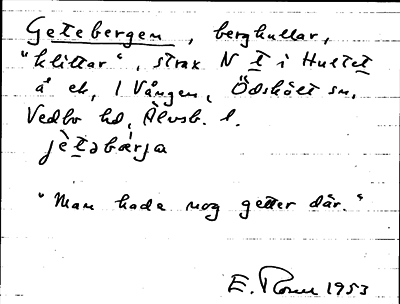 Getebergen, bergkullar,
"klittar", strax N t i Hultet
å ek, 1 Vången, Ödskölt sn,
Vedbo hd, Älvsb. l.
jètəbærja
"Man hade nog getter där."
E. 1953